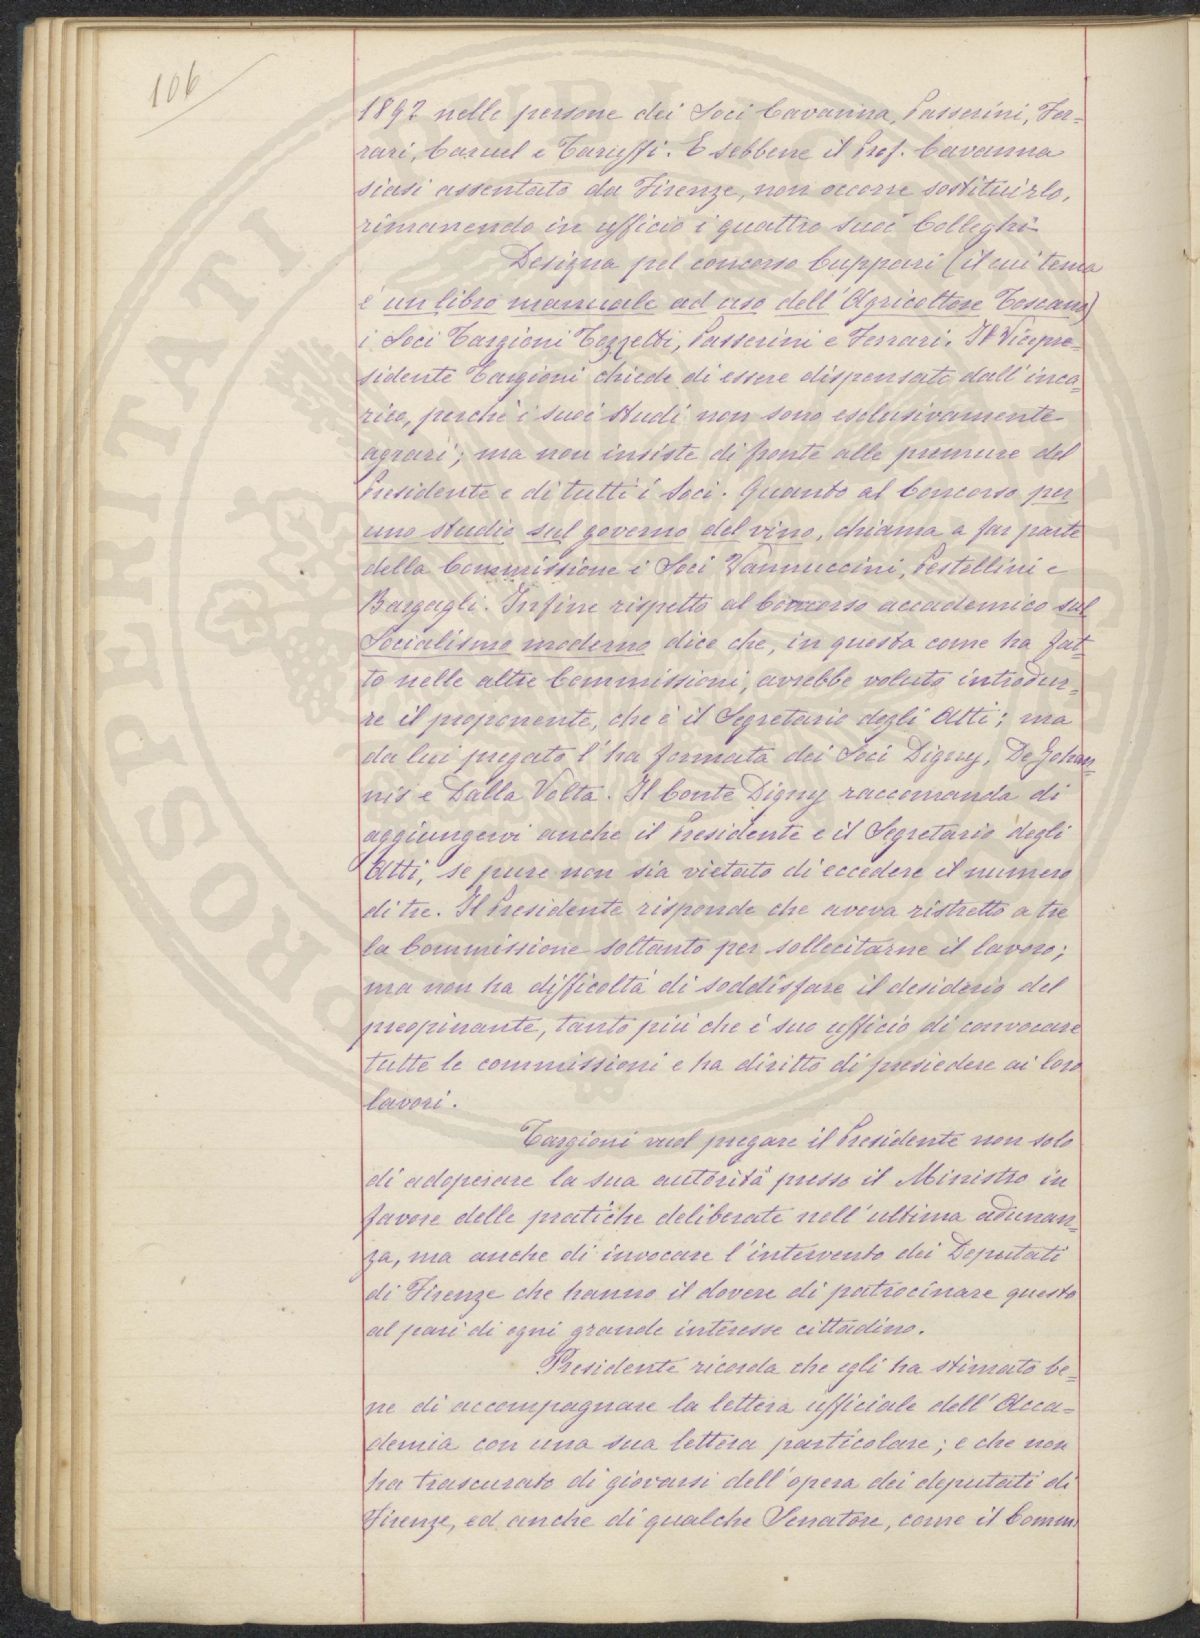 106
1892 nelle persone dei Soci Cavanna, Passerini, Fer=
rari, Caruel e Taruffi. E sebbene il Prof. Cavanna
siasi assentato da Firenze, non occorre sostituirlo,
rimanendo in ufficio i quattro suoi Colleghi.
Designa pel concorso Cuppari (il cui tema
è un libro manuale ad uso dell'Agricoltore Toscano)
i Soci Targioni Tozzetti, Passerini e Ferrari. Il Vicepre=
sidente Targioni chiede di essere dispensato dall'inca=
rico, perchè i suoi studi non sono esclusivamente
agrari; ma non insiste di fronte alle premure del
Presidente e di tutti i Soci. Quanto al Concorso per
uno studio sul governo del vino, chiama a far parte
della Commissione i Soci Vannuccini, Pestellini e
Bargagli. Infine rispetto al Concorso accademico sul
Socialismo moderno dice che, in questa come ha fat=
to nelle altre Commissioni, avrebbe voluto introdur=
re il proponente, che è il Segretario degli Atti; ma
da lui pregato l'ha formata dei Soci Digny, De Johan=
nis e Dalla Volta. Il Conte Digny raccomanda di
aggiungervi anche il Presidente e il Segretario degli
Atti, se pure non sia vietato di eccedere il numero
di tre. Il Presidente risponde che aveva ristretto a tre
la Commissione soltanto per sollecitarne il lavoro;
ma non ha difficoltà di soddisfare il desiderio del
preopinante, tanto più che è suo ufficio di convocare
tutte le commissioni e ha diritto di presiedere ai loro
lavori.
Targioni vuol pregare il Presidente non solo
di adoperare la sua autorità presso il Ministro in
favore delle pratiche deliberate nell'ultima adunan=
za, ma anche di invocare l'intervento dei Deputati
di Firenze che hanno il dovere di patrocinare questo
al pari di ogni grande interesse cittadino.
Presidente ricorda che egli ha stimato be=
ne di accompagnare la lettera ufficiale dell'Acca=
demia con una sua lettera particolare; e che non
ha trascurato di giovarsi dell'opera dei deputati di
Firenze, ed anche di qualche Senatore, come il Comm.
PROSPERITATI PUBLICAE AUGENDAE